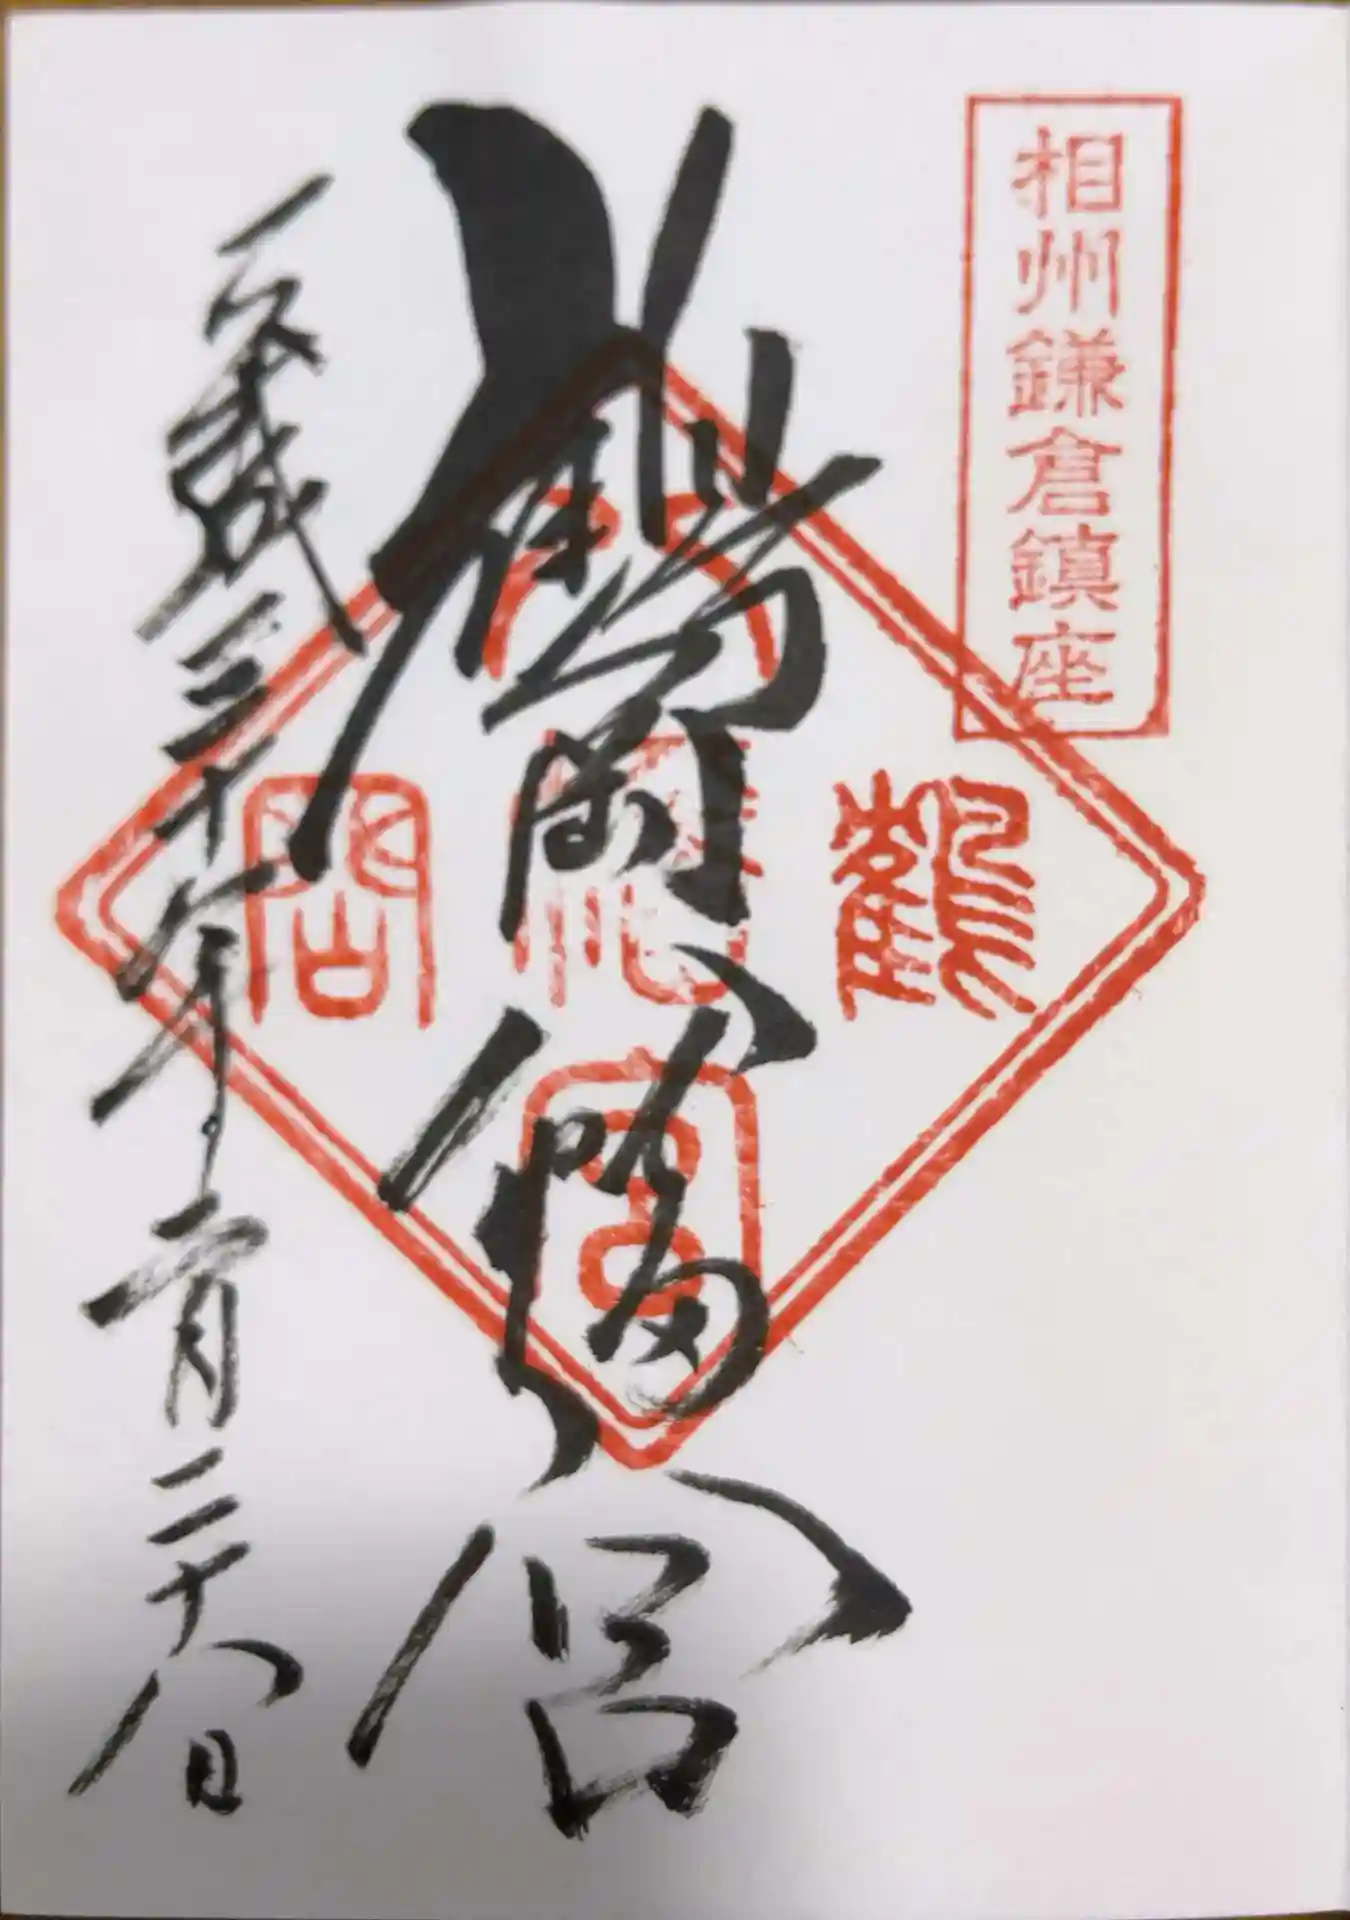 相州鎌倉鎮座
鶴岡八幡宮
鶴岡八幡宮
平成三十年二月二十八日